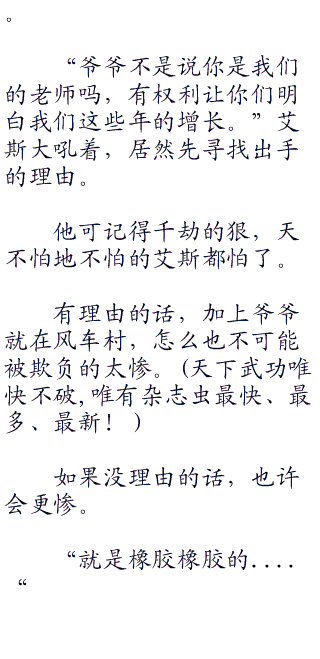 。
“爷爷不是说你是我们
的老师吗，有权利让你们明
白我们这些年的增长。”艾
斯大吼着，居然先寻找出手
的理由。
他可记得千劫的狠，天
不怕地不怕的艾斯都怕了。
有理由的话，加上爷爷
就在风车村，怎么也不可能
被欺负的太惨。(天下武功唯
快不破,唯有杂志虫最快、最
多、最新！ )
如果没理由的话，也许
会更惨。
“就是橡胶橡胶的....
“